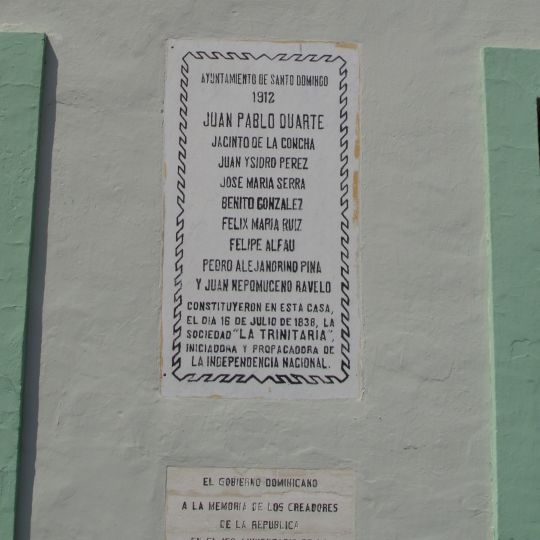 AYUNTAMIENTO DE SANTO DOMINGO
1912
JUAN PABLO DUARTE
JACINTO DE LA CONCHA
JUAN YSIDRO PEREZ
JOSE MARIA SERRA
BENITO GONZALEZ
FELIX MARIA RUIZ
FELIPE ALFAU
PEDRO ALEJANDRINO PINA
Y JUAN NEPOMUCENO RAVELO
CONSTITUYERON EN ESTA CASA,
EL DIA 16 DE JULIO DE 1838, LA
SOCIEDAD "LA TRINITARIA",
INICIADORA Y PROPAGADORA DE
LA INDEPENDENCIA NACIONAL.
EL GOBIERNO DOMINICANO
A LA MEMORIA DE LOS CREADORES
DE LA REPUBLICA